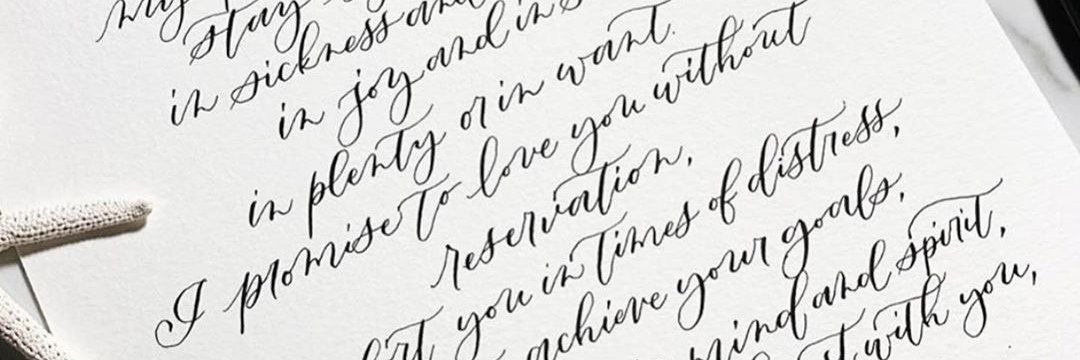 my
stay
in sickness and
in joy and in
in plenty or in want.
I promise to love you without
reservation,
you in times of distress,
achieve your goals,
mind and spirit,
with you,